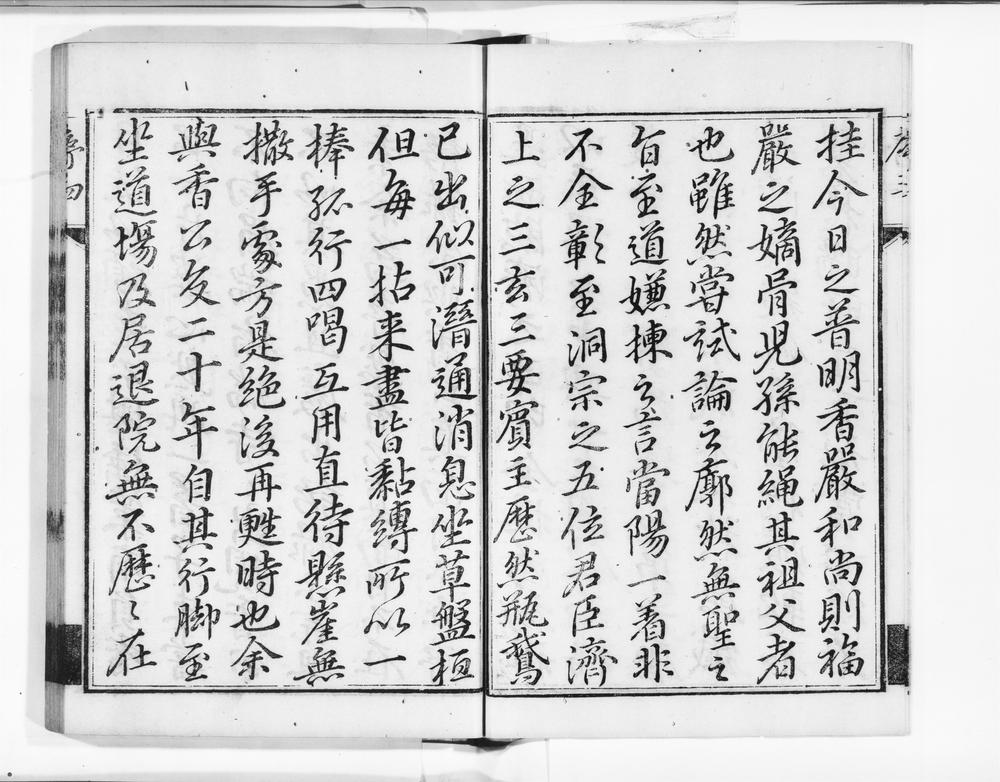 挂今日之普明香嚴和尚則福
嚴之嫡骨兒孫能繩其祖父者
也雖然嘗試論之廓然無聖之
旨至道嫌揀之言當陽一着非
不全彰至洞宗之五位君臣濟
上之三玄三要賓主歷然瓶鵞
已出似可潛通消息坐草盤桓
但每一拈来盡皆黏縛所以一
棒孤行四喝互用直待懸崖無
撒手處方是绝後再甦時也余
與香公交二十年自其行脚至
坐道塲及居退院無不歷〻在
序四